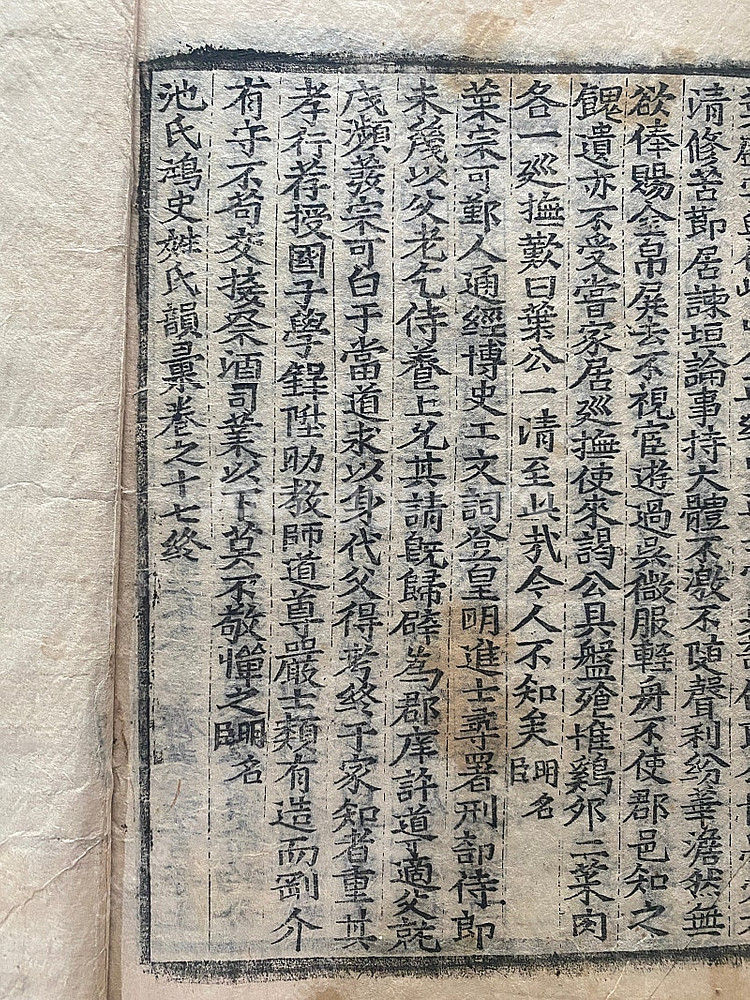 清修苦節居諫垣論事持大體不激不隨聲利紛華澹然無
欲俸賜金帛屛去不視宦遊過吳微服輕舟不使郡邑知之
餽遺亦不受嘗家居廵撫使來謁公具盤飱惟鷄卵二葉肉
各一廵撫歎曰葉公一清至此㢤令人不知矣明名臣
葉宗可鄞人通經博史工文詞登皇明進士尋署刑部侍郎
未幾以父老乞侍養上允其請旣歸辟爲郡庠許道丁適父疣
宗可白于當道求以身代父得考終于家知者重其
孝行荐授國子學錄陞助教師道尊嚴士類有造而剛介
有守不苟交接祭酒司業以下莫不敬憚之明名臣
池氏鴻史姓氏韻彙卷之十七終